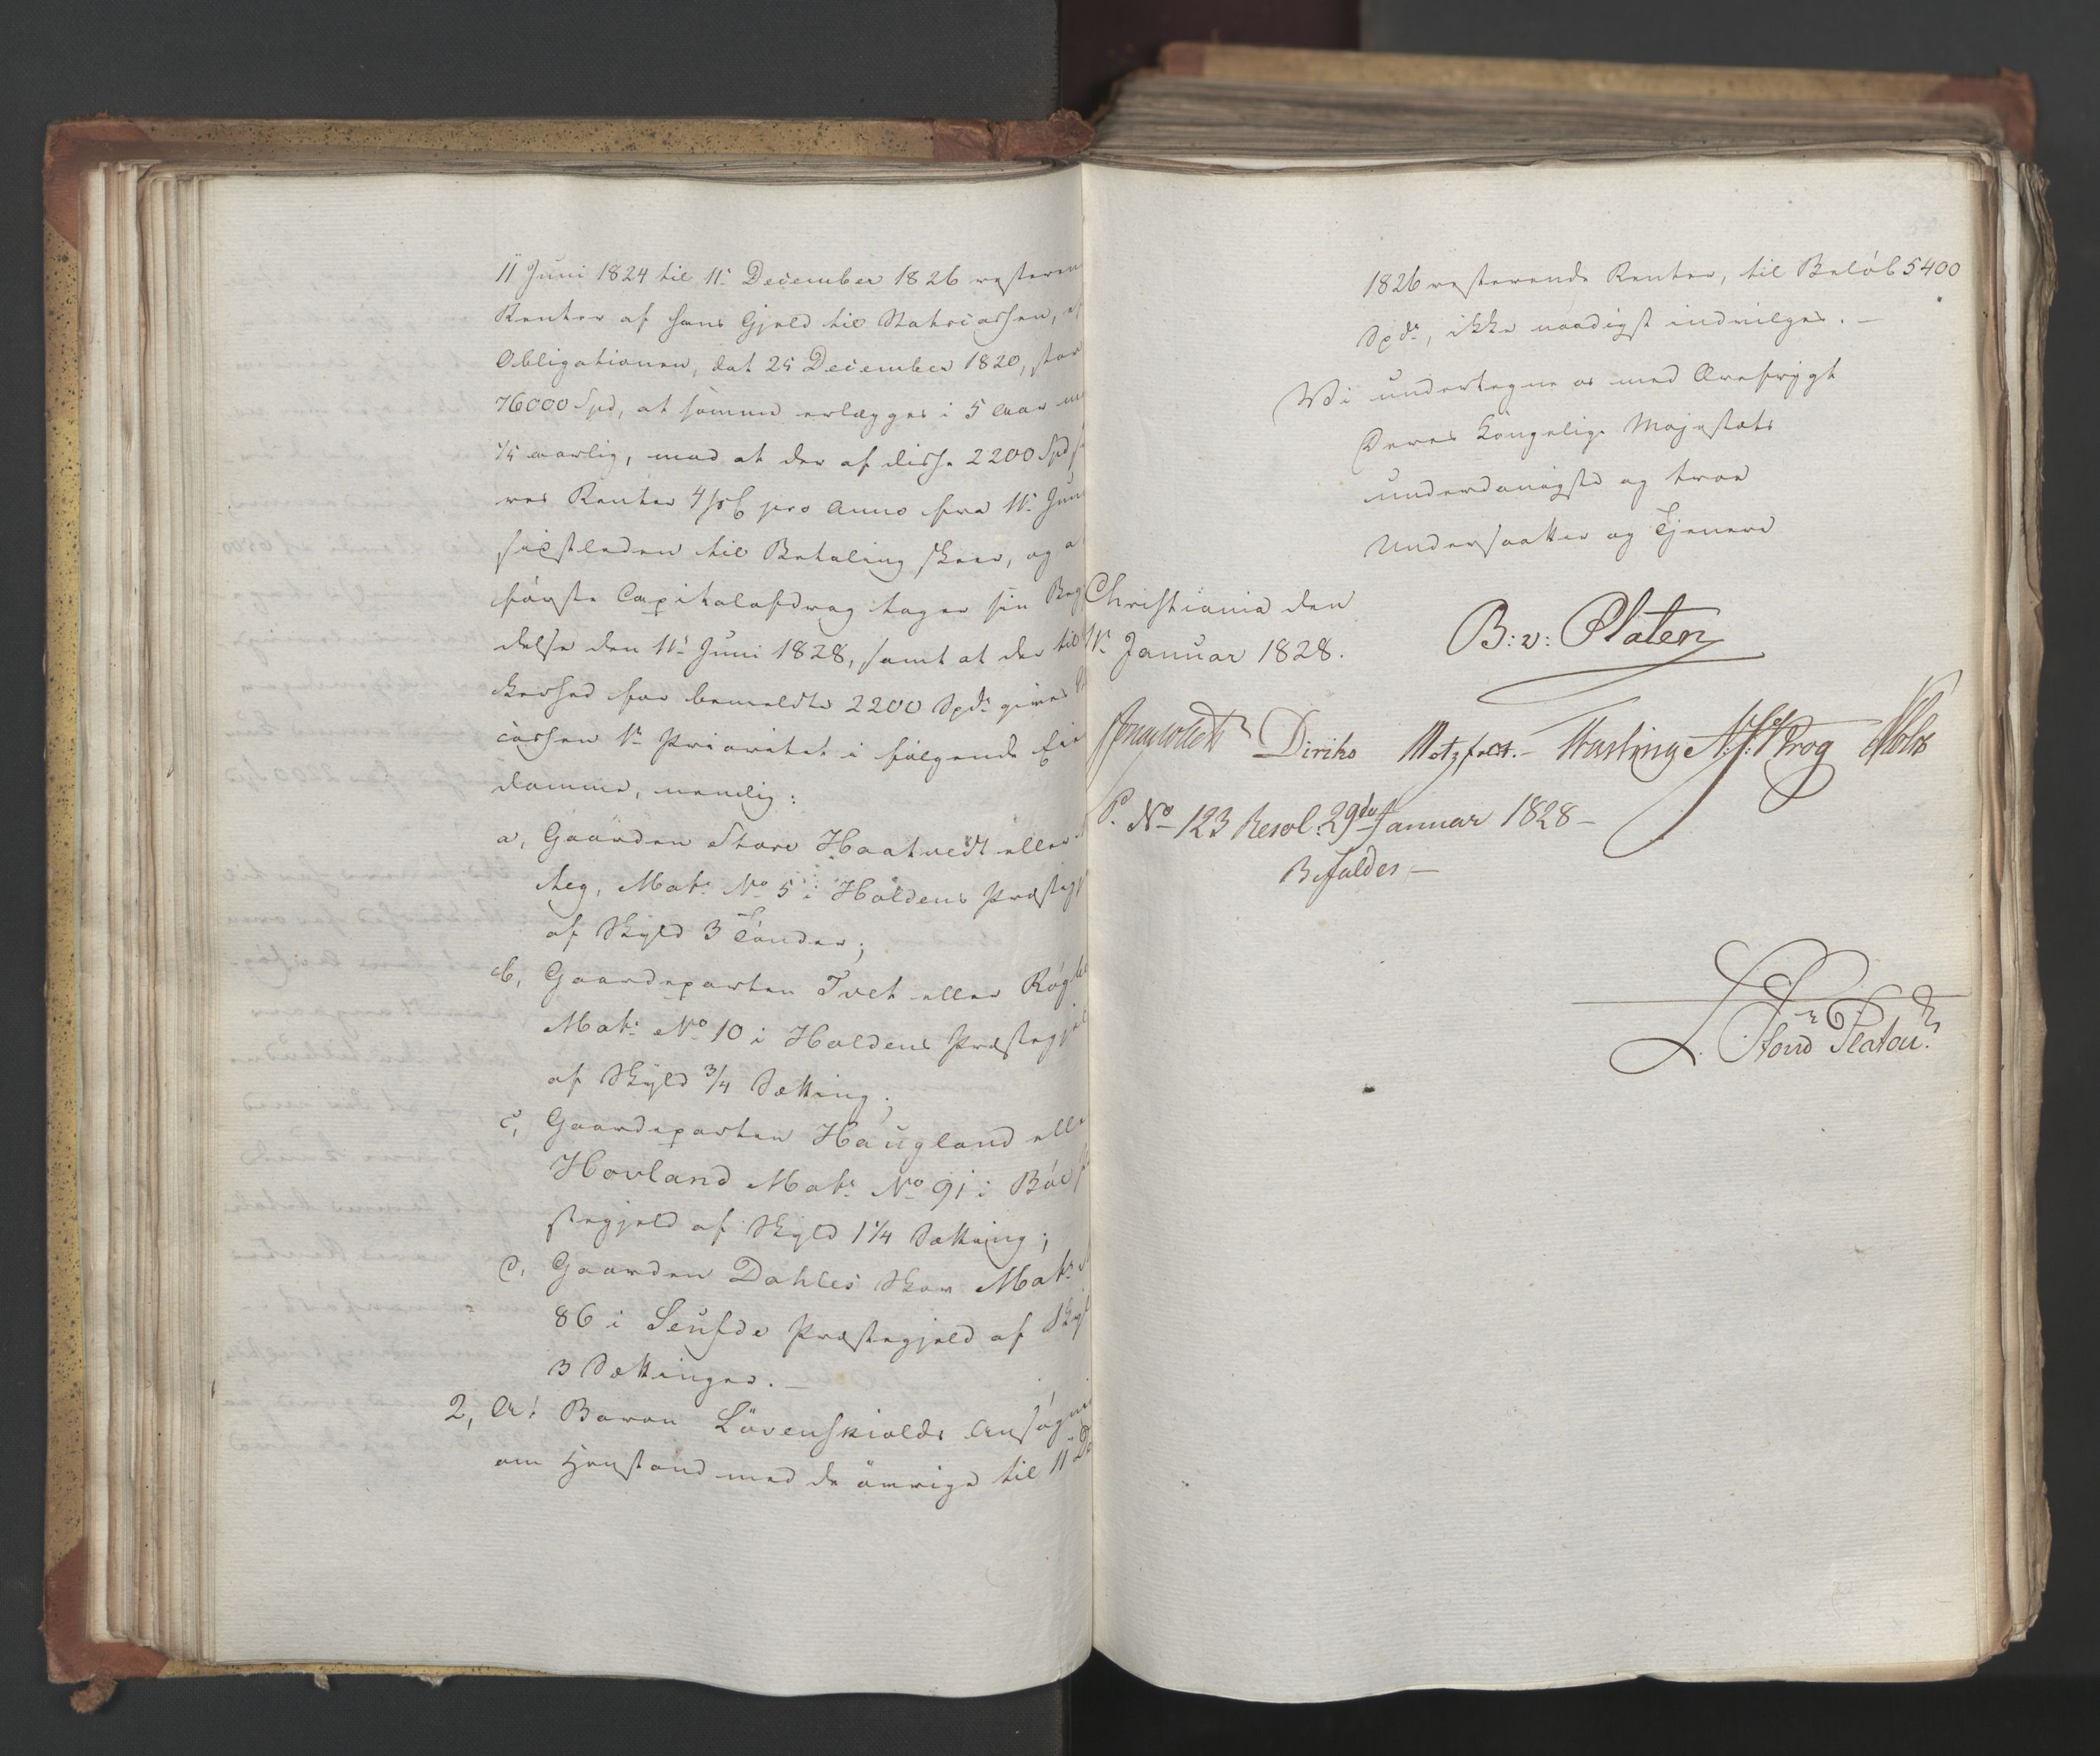 11 Juni 1824 til 11te December 1826 resteren
Renter af hans Gjeld til Statscassen, ef
Obligationen, dat 25 December 1820, stor
76000 Spd, at samme erlægges i 5 Aar med
1/5 aarlig, mod at der af disse 2200 Spd sva
res Renter 4 pC pro Anno fra 11te Juni
sidstleden til Betaling skeer, og at
første Capitalafdrag tager sin Beg
delse den 11te Juni 1828, samt at der til
kerhed for bemeldte 2200 Spdr gives
cassen 1ste Prioritet i følgende Eien
domme, nemlig:
a, Gaarden Store Haatvedt eller
Aeg, Matr No 5 i Holdens Præstegj
af Skyld 3 Tønder;
b, Gaardeparten Tvet eller Røg
Matr No 10 i Holdens Præstegjel
af Skyld 3/4 Sætting;
c, Gaardeparten Haugland elle
Hovland Matr No 91 i Böe
stegjeld af Skyld 1 1/4 Sætting;
d, Gaarden Dahles Skov Matr
86 i Seufde Præstegjeld af Skyl
3 Sættinger. —
2, At Baron Lövenskiolds Ansøgni
om Henstand med de øvrige til 11te De
1826 resterende Renter, til Beløb 5400
Spdr, ikke naadigst indvilges. —
Vi undertegne os med Ærefrygt
Deres Kongelige Majestæts
underdanigste og troe
Undersaatter og Tjenere
Christiania den
11te Januar 1828.
B: v: Platen
Jonas Collett Diriks Motzfeldt. — Fasting A: F: Krog Holst
P. No 123 Resol: 29de Januar 1828 —
Bifaldes —
L. Stoud Platou